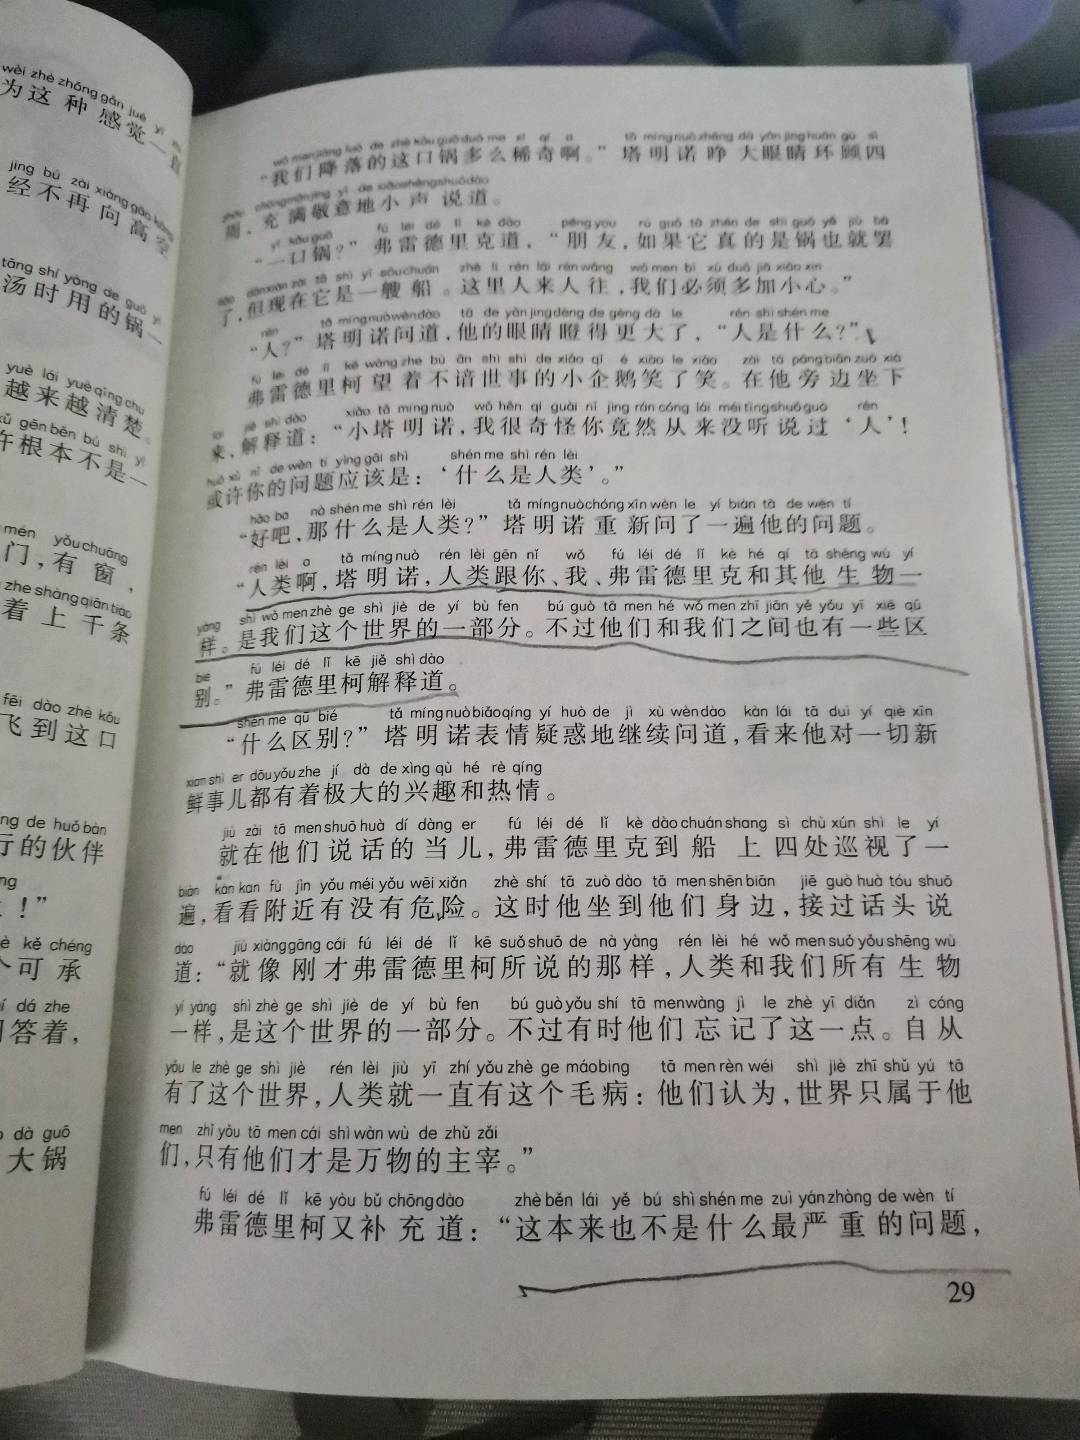 wèi zhè zhǒng gǎn jué yì
为这种感觉一直
jīng bú zài xiàng gāo kōng
经不再向高空
tāng shí yòng de guō yī
汤时用的锅一
yuè lái yuè qīng chu
越来越清楚。
xǔ gēn běn bú shì yī
许根本不是一
mén yǒu chuāng
门,有窗,
zhe shàng qiān tiáo
着上千条
fēi dào zhè kǒu
飞到这口
ng de huǒ bàn
行的伙伴
!”
kě chéng
个可承
dá zhe
答着,
dà guō
大锅
wǒ men jiàng luò de zhè kǒu guō duō me xī qí a tǎ míng nuò zhēng dà yǎn jing huán gù sì
“我们降落的这口锅多么稀奇啊。”塔明诺睁大眼睛环顾四
zhōu chōng mǎn jìng yì de xiǎo shēng shuō dào
周,充满敬意地小声说道。
yī kǒu guō fú léi dé lǐ kè dào péng you rú guǒ tā zhēn de shì guō yě jiù bà
“一口锅?”弗雷德里克道,“朋友,如果它真的是锅也就罢
liǎo dàn xiàn zài tā shì yī sōu chuán zhè lǐ rén lái rén wǎng wǒ men bì xū duō jiā xiǎo xīn
了,但现在它是一艘船。这里人来人往,我们必须多加小心。”
rén tǎ míng nuò wèn dào tā de yǎn jing dèng de gèng dà le rén shì shén me
“人?”塔明诺问道,他的眼睛瞪得更大了,“人是什么?”
fú léi dé lǐ kē wàng zhe bù ān shì shì de xiǎo qǐ é xiào le xiào zài tā páng biān zuò xià
弗雷德里柯望着不谙世事的小企鹅笑了笑。在他旁边坐下
lai jiě shì dào xiǎo tǎ míng nuò wǒ hěn qí guài nǐ jìng rán cóng lái méi tīng shuō guò rén
来,解释道:“小塔明诺,我很奇怪你竟然从来没听说过‘人’!
huò xǔ nǐ de wèn tí yīng gāi shì shén me shì rén lèi
或许你的问题应该是:‘什么是人类’。”
hǎo ba nà shén me shì rén lèi tǎ míng nuò chóng xīn wèn le yí biàn tā de wèn tí
“好吧,那什么是人类?”塔明诺重新问了一遍他的问题。
rén lèi a tǎ míng nuò rén lèi gēn nǐ wǒ fú léi dé lǐ kè hé qí tā shēng wù yí
“人类啊,塔明诺,人类跟你、我、弗雷德里克和其他生物一
yàng shì wǒ men zhè ge shì jiè de yí bù fen bú guò tā men hé wǒ men zhī jiān yě yǒu yī xiē qū
样。是我们这个世界的一部分。不过他们和我们之间也有一些区
bié fú léi dé lǐ kē jiě shì dào
别。”弗雷德里柯解释道。
shén me qū bié tǎ míng nuò biǎo qíng yí huò de jì xù wèn dào kàn lái tā duì yí qiè xīn
“什么区别?”塔明诺表情疑惑地继续问道,看来他对一切新
xian shì er dōu yǒu zhe jí dà de xìng qù hé rè qíng
鲜事儿都有着极大的兴趣和热情。
jiù zài tā men shuō huà dí dàng er fú léi dé lǐ kè dào chuán shang sì chù xún shì le yí
就在他们说话的当儿,弗雷德里克到船上四处巡视了一
biàn kàn kan fù jìn yǒu méi yǒu wēi xiǎn zhè shí tā zuò dào tā men shēn biān jiē guò huà tóu shuō
遍,看看附近有没有危险。这时他坐到他们身边,接过话头说
dào jiù xiàng gāng cái fú léi dé lǐ kē suǒ shuō de nà yàng rén lèi hé wǒ men suǒ yǒu shēng wù
道:“就像刚才弗雷德里柯所说的那样,人类和我们所有生物
yí yàng shì zhè ge shì jiè de yí bù fen bú guò yǒu shí tā men wàng jì le zhè yī diǎn zì cóng
一样,是这个世界的一部分。不过有时他们忘记了这一点。自从
yǒu le zhè ge shì jiè rén lèi jiù yī zhí yǒu zhè ge máo bìng tā men rèn wéi shì jiè zhī shǔ yú tā
有了这个世界,人类就一直有这个毛病:他们认为,世界只属于他
men zhǐ yǒu tā men cái shì wàn wù de zhǔ zǎi
们,只有他们才是万物的主宰。”
fú léi dé lǐ kē yòu bǔ chōng dào zhè běn lái yě bú shì shén me zuì yán zhòng de wèn tí
弗雷德里柯又补充道:“这本来也不是什么最严重的问题,
29